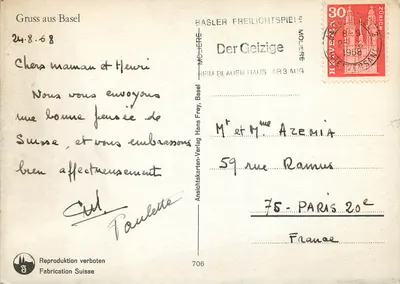 Gruss aus Basel
24.8.68
Chers maman et Henri
Nous vous envoyons
une bonne pensée de
Suisse, et vous embrassons
bien affectueusement
Paulette
Reproduktion verboten
Fabrication Suisse
Ansichtskarten-Verlag Hans Frey, Basel
706
BASLER FREILICHTSPIELE
MOLIERE
Der Geizige
MOLIERE
BEIM BLAUEN HAUS
30
ZÜRICH
HELVETIA
1968
Mr et Mme AZEMIA
59 rue RAMUS
75 - PARIS 20e
France